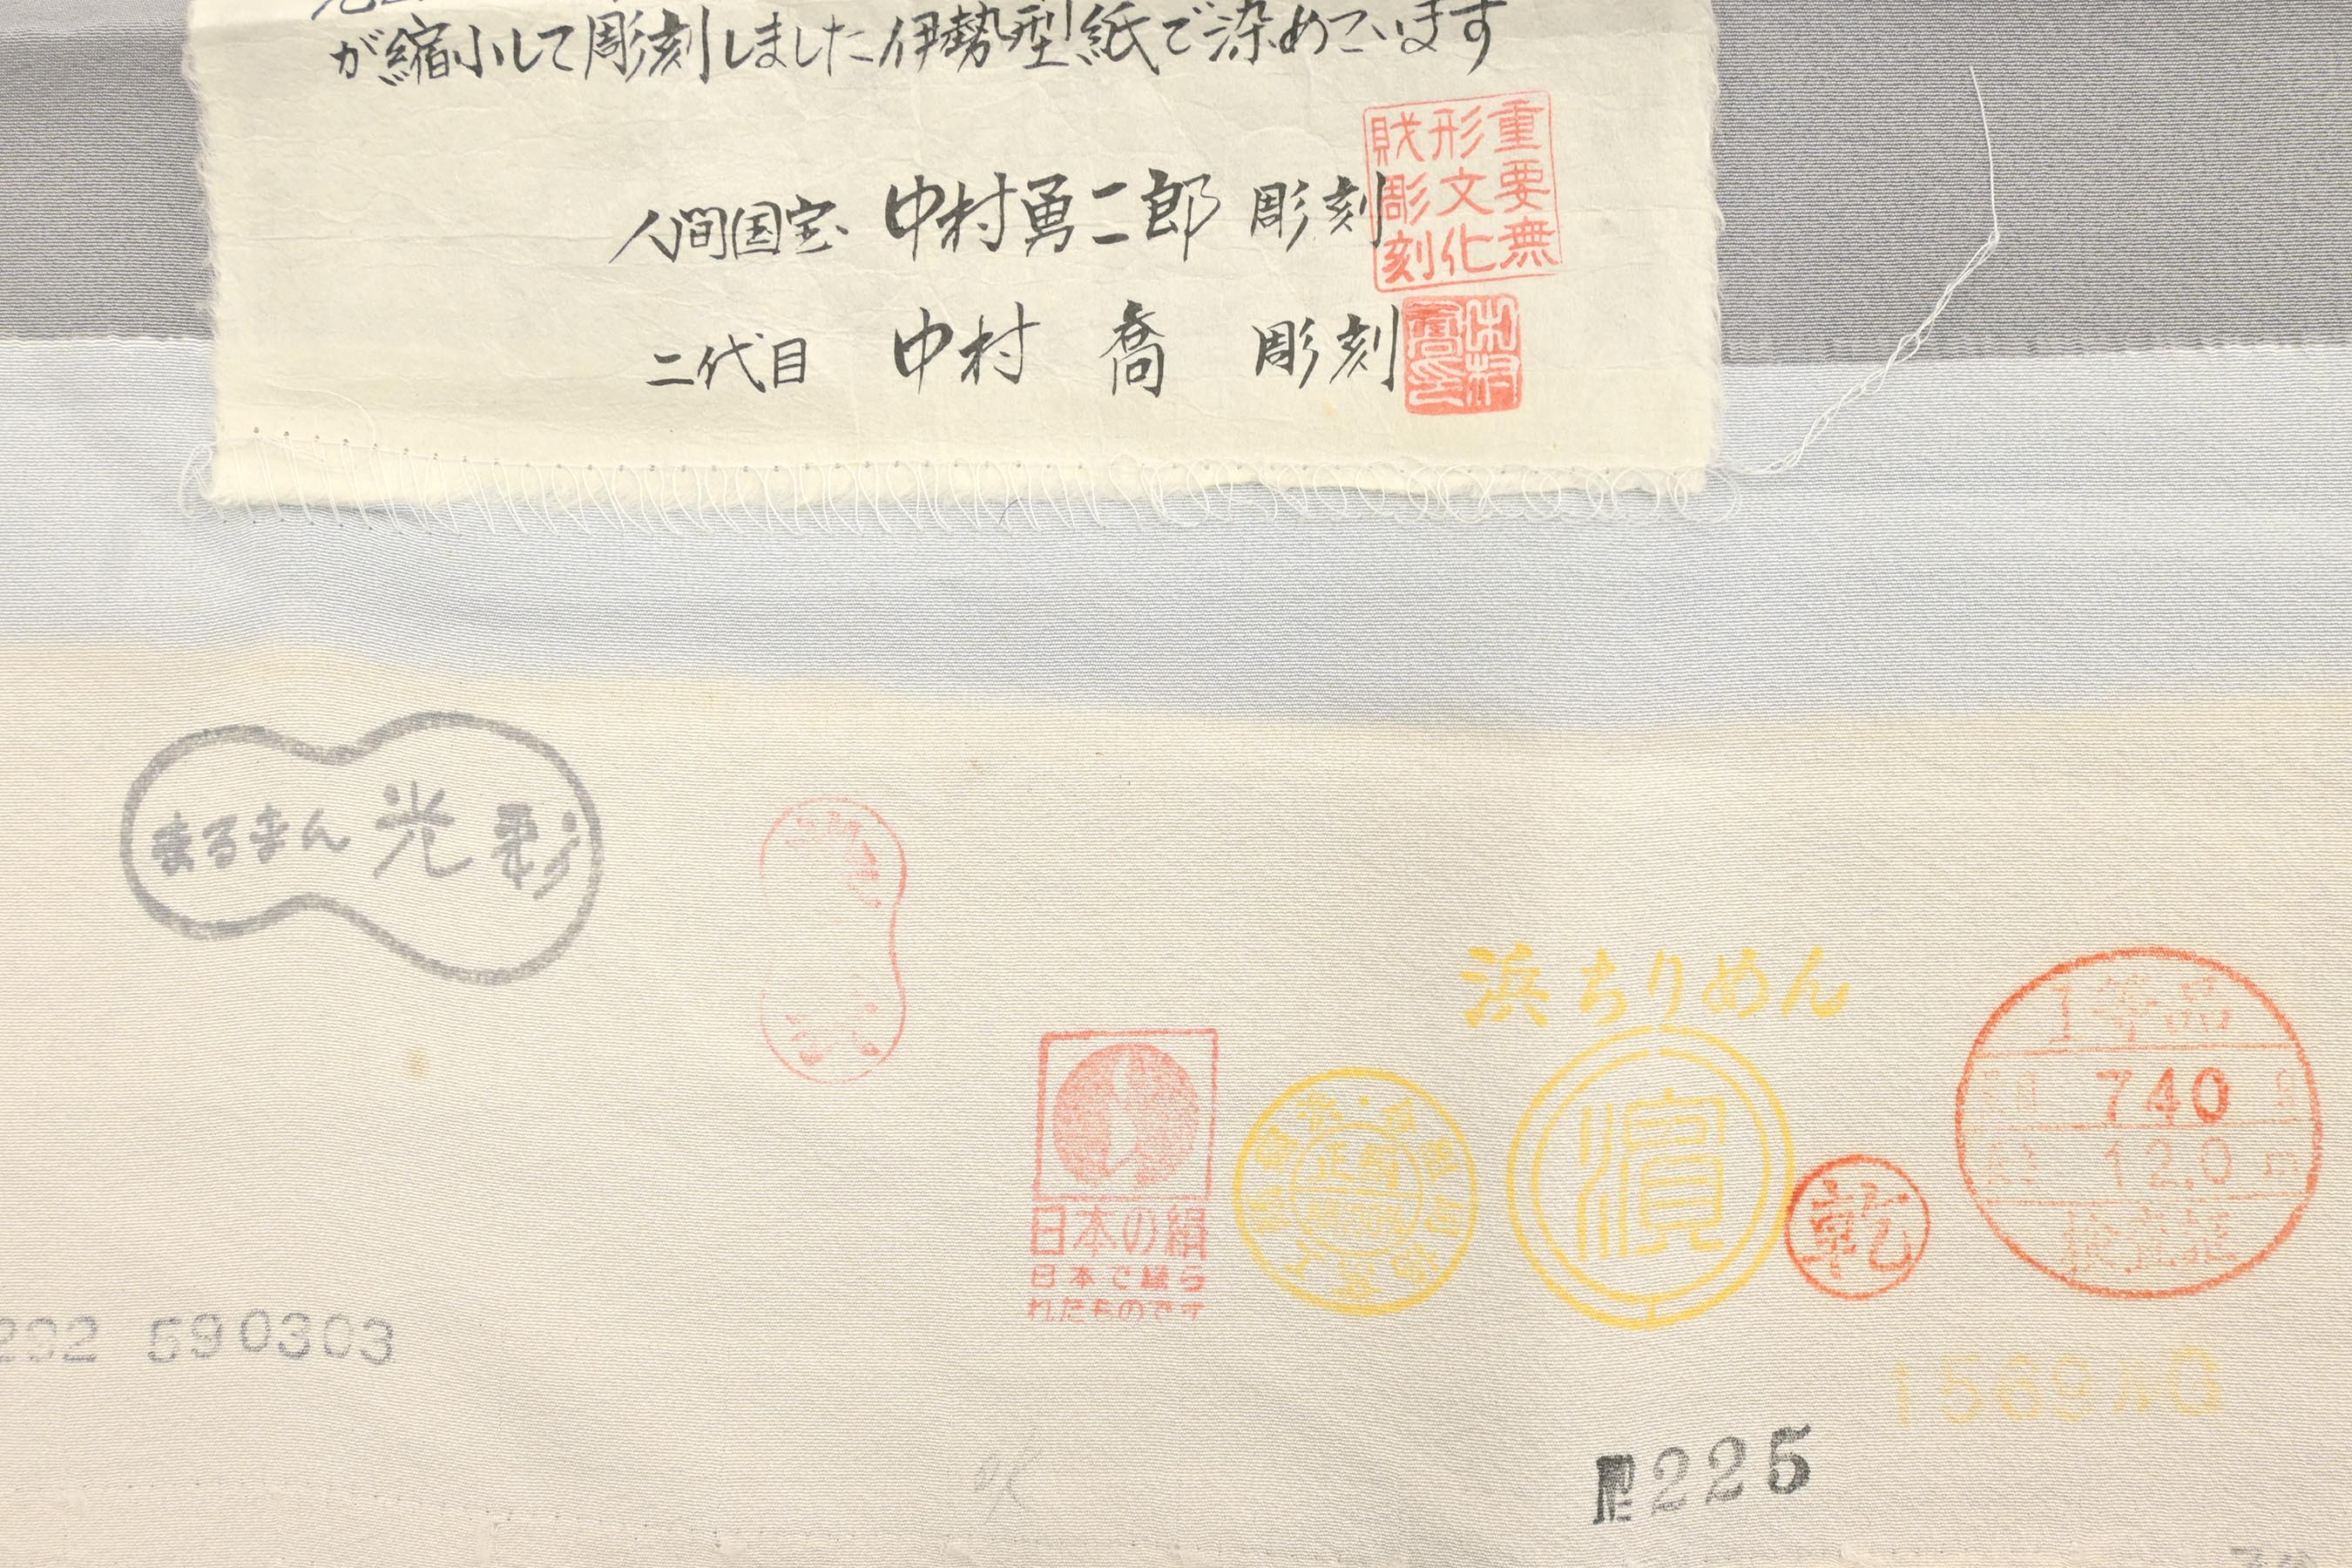 が縮小して彫刻しました伊勢型紙で染めています
人間国宝 中村勇二郎 彫刻
重要無
形文化
財彫刻
二代目 中村 喬 彫刻
中村
喬印
まるまん 光彩
浜ちりめん
濱
乾
1等品
740
12.0
検査証
正絹
日本の絹
日本で織ら
れたものです
292 590303
225
OK